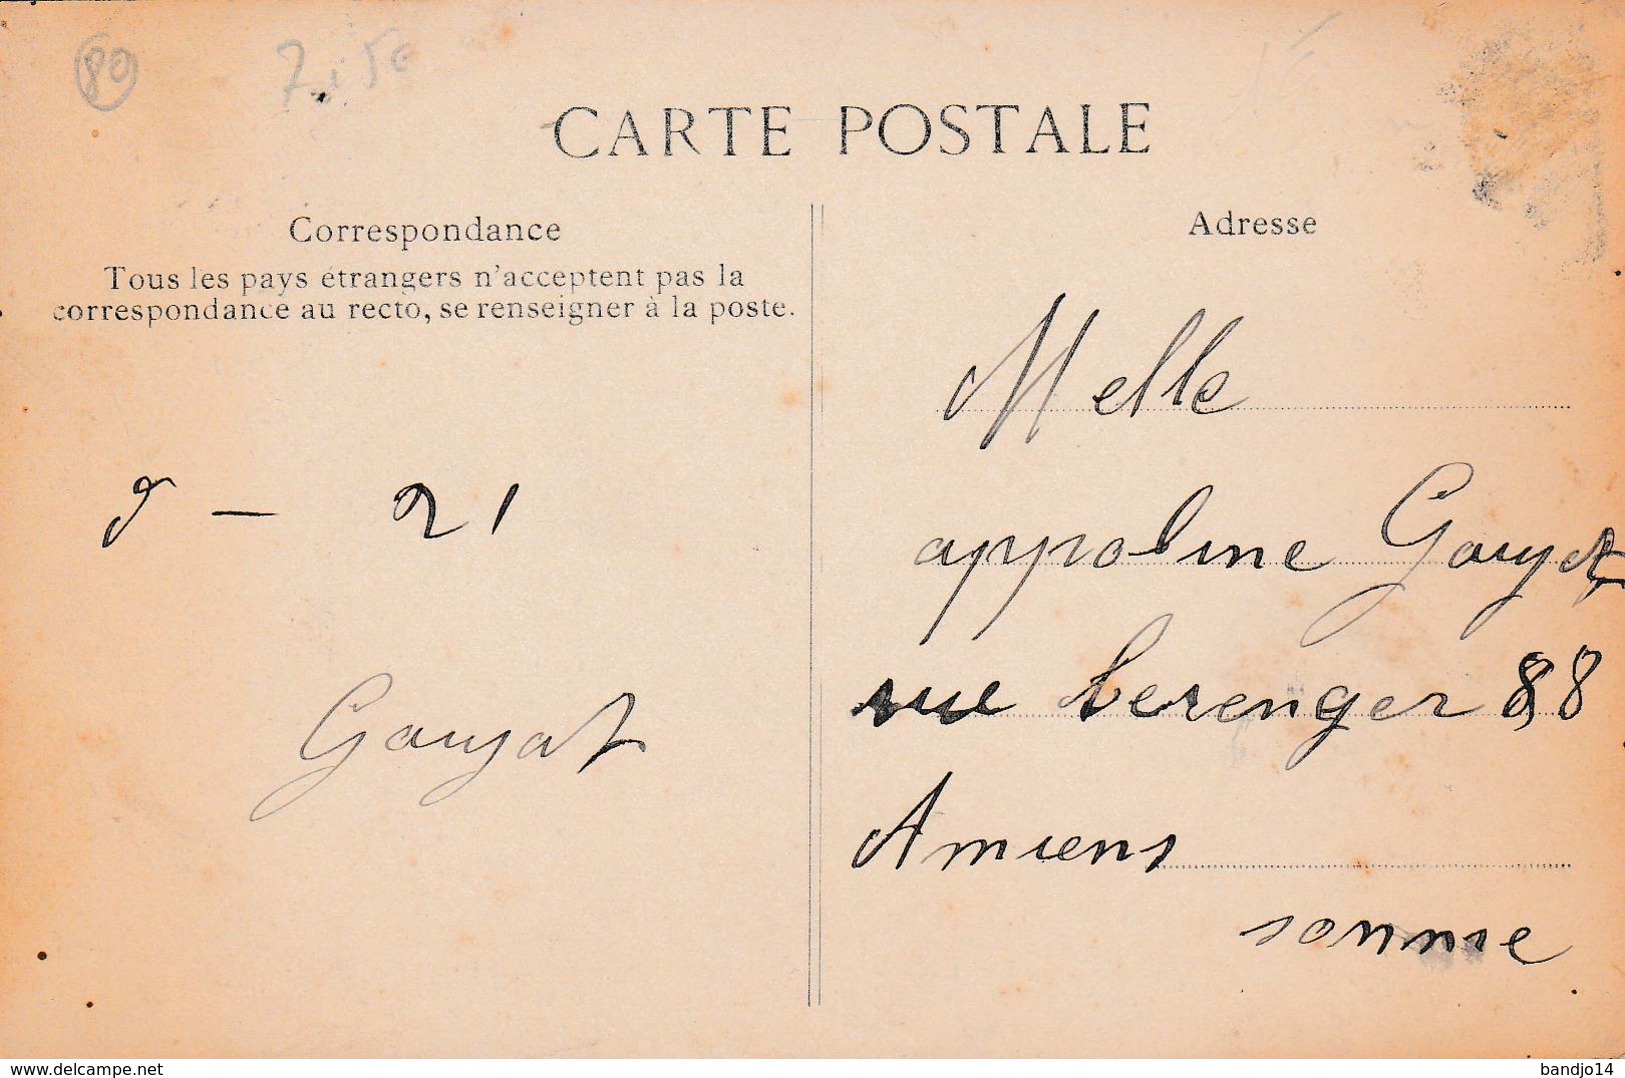 80
7,50
CARTE POSTALE
Correspondance
Tous les pays étrangers n'acceptent pas la
correspondance au recto, se renseigner à la poste.
9 - 21
Gouyat
Adresse
Melle
appoline Gouyat
rue berenger 88
Amiens
somme
www.delcampe.net
bandjo14